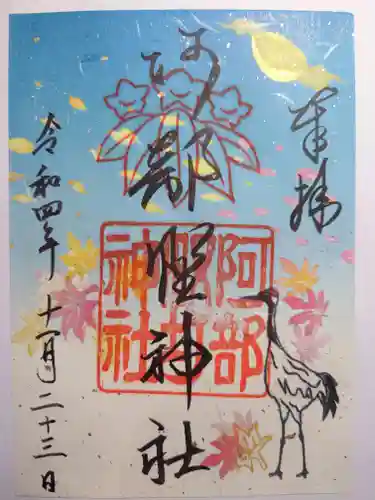 奉拝
阿部野神社
令和四年十一月二十三日
阿部
野
神社